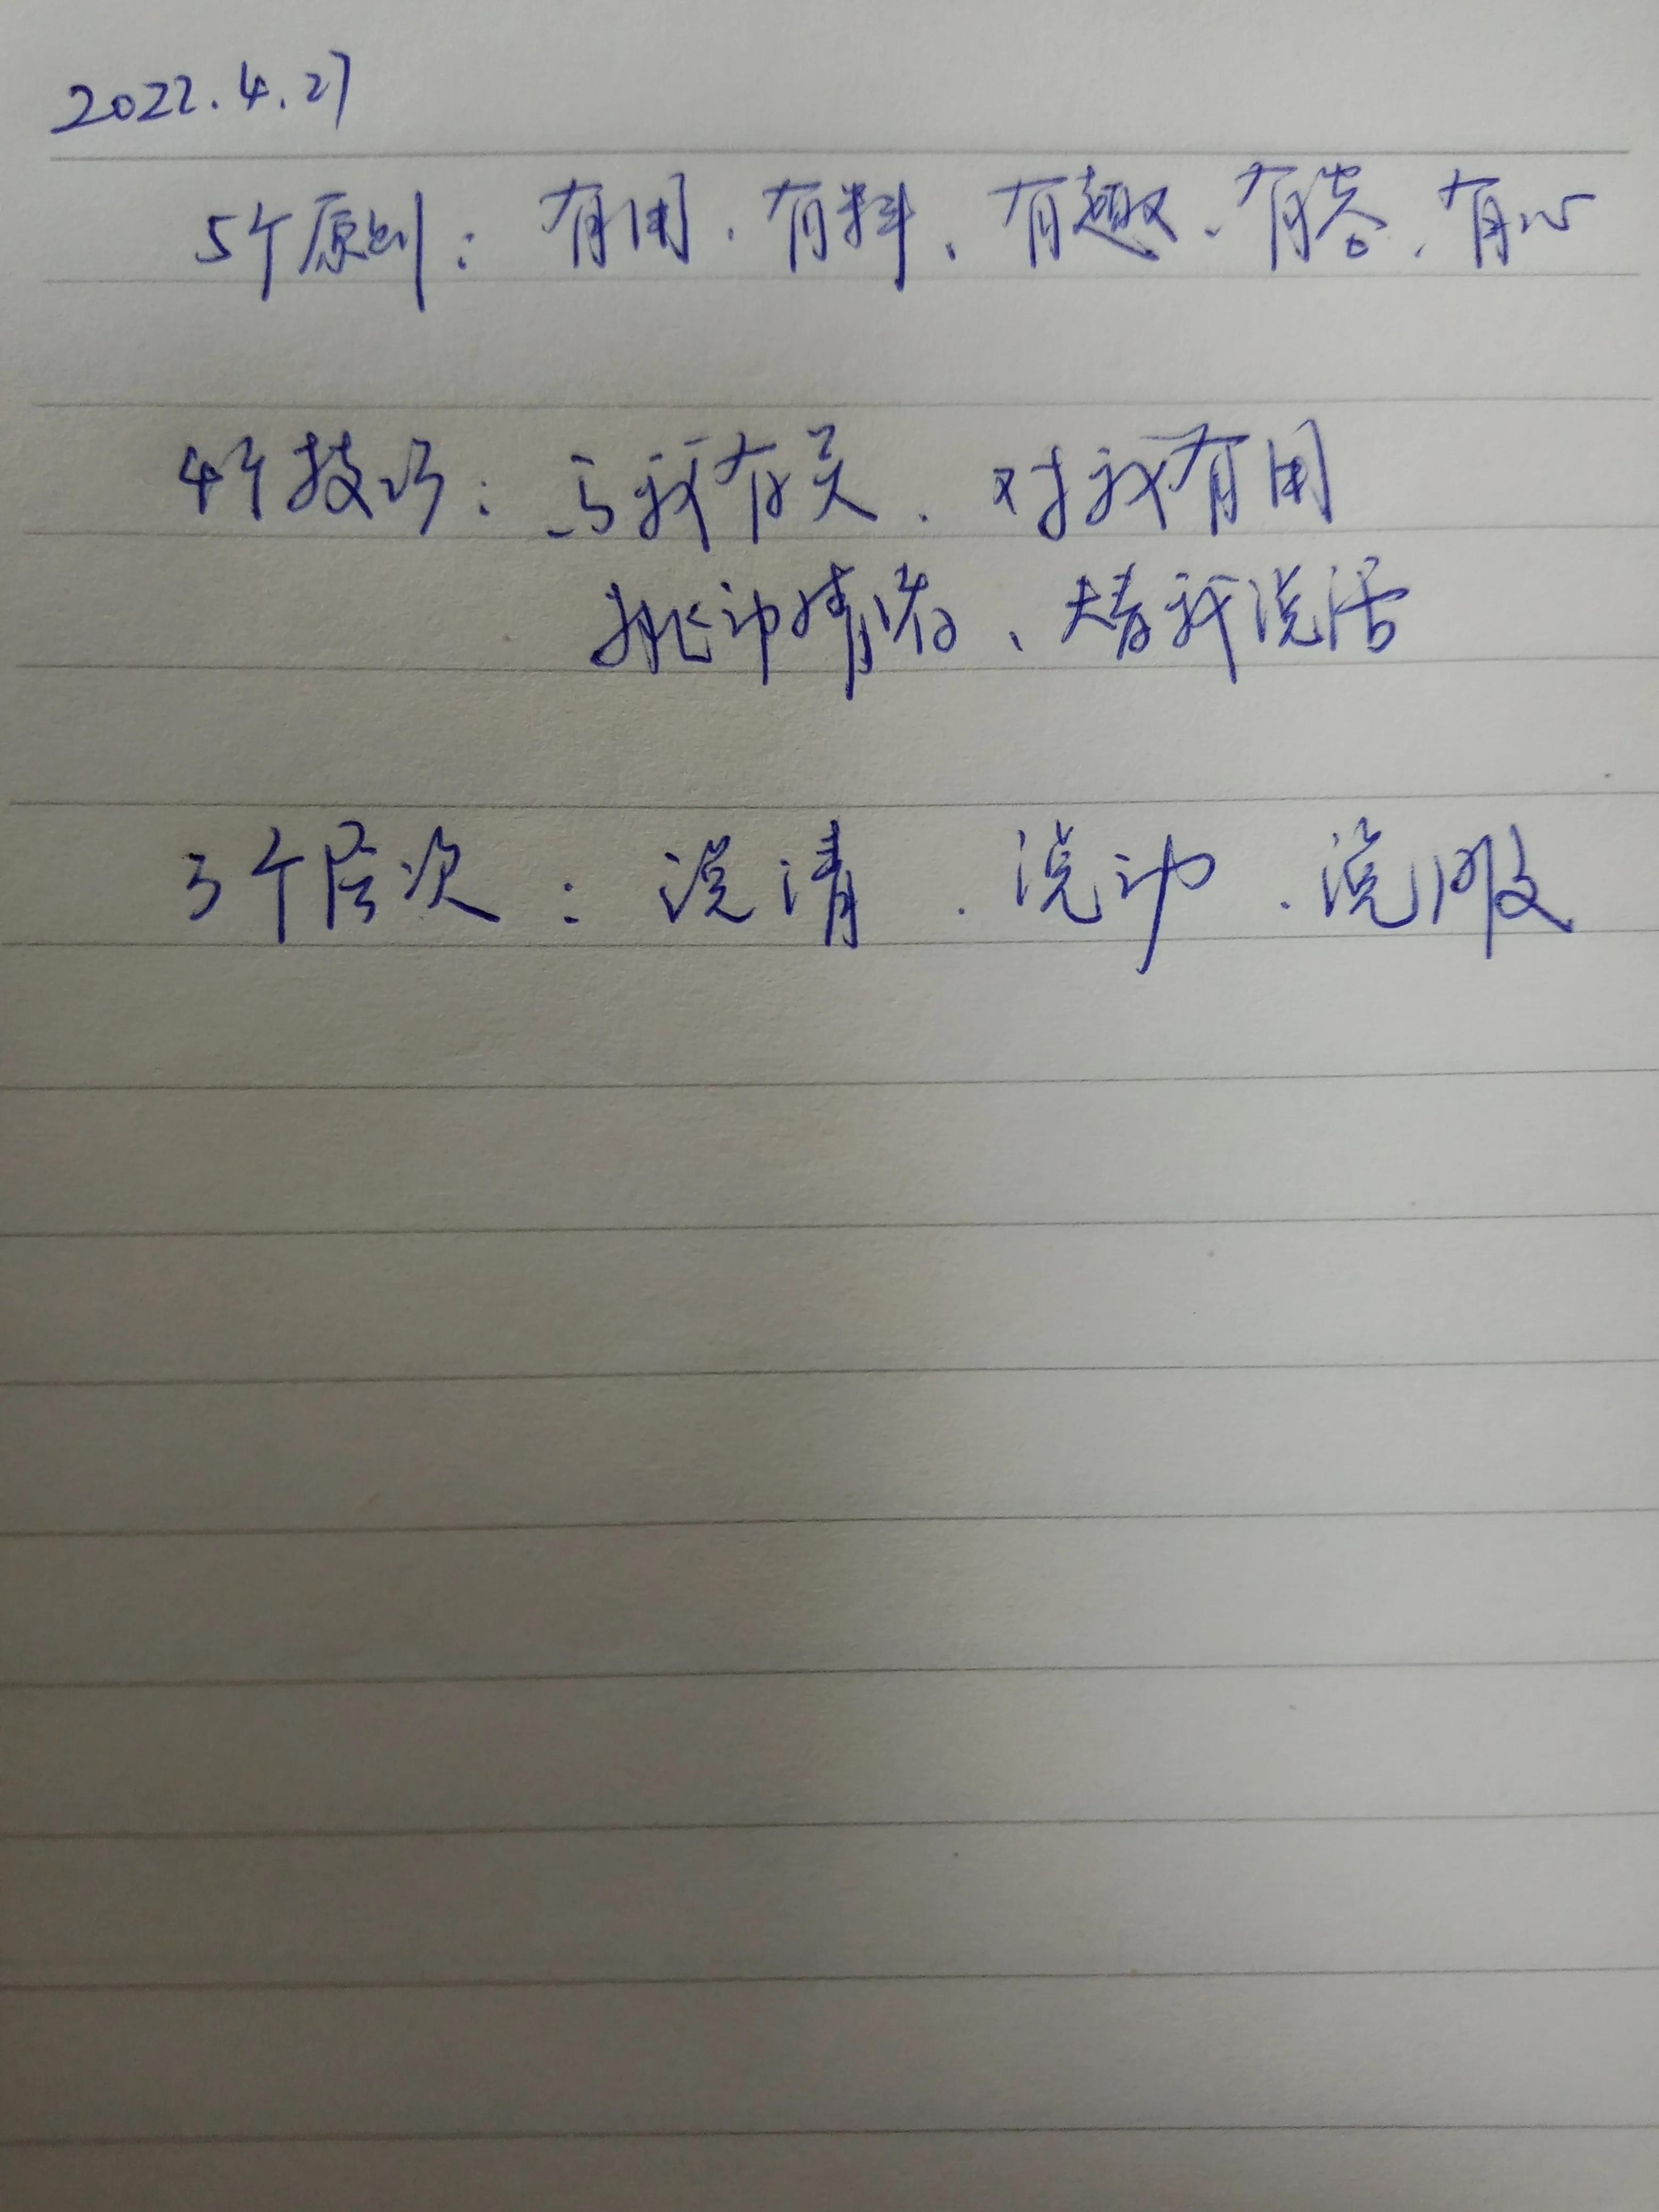 2022.4.27
5个原则：有用、有料、有趣、有答、有心
4个技巧：与我有关、对我有用
挑动情绪、替我说话
3个层次：说清、说动、说服